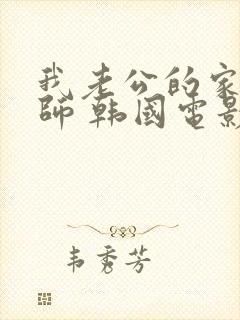 我老公的家
師 韓國電影
韦秀芳